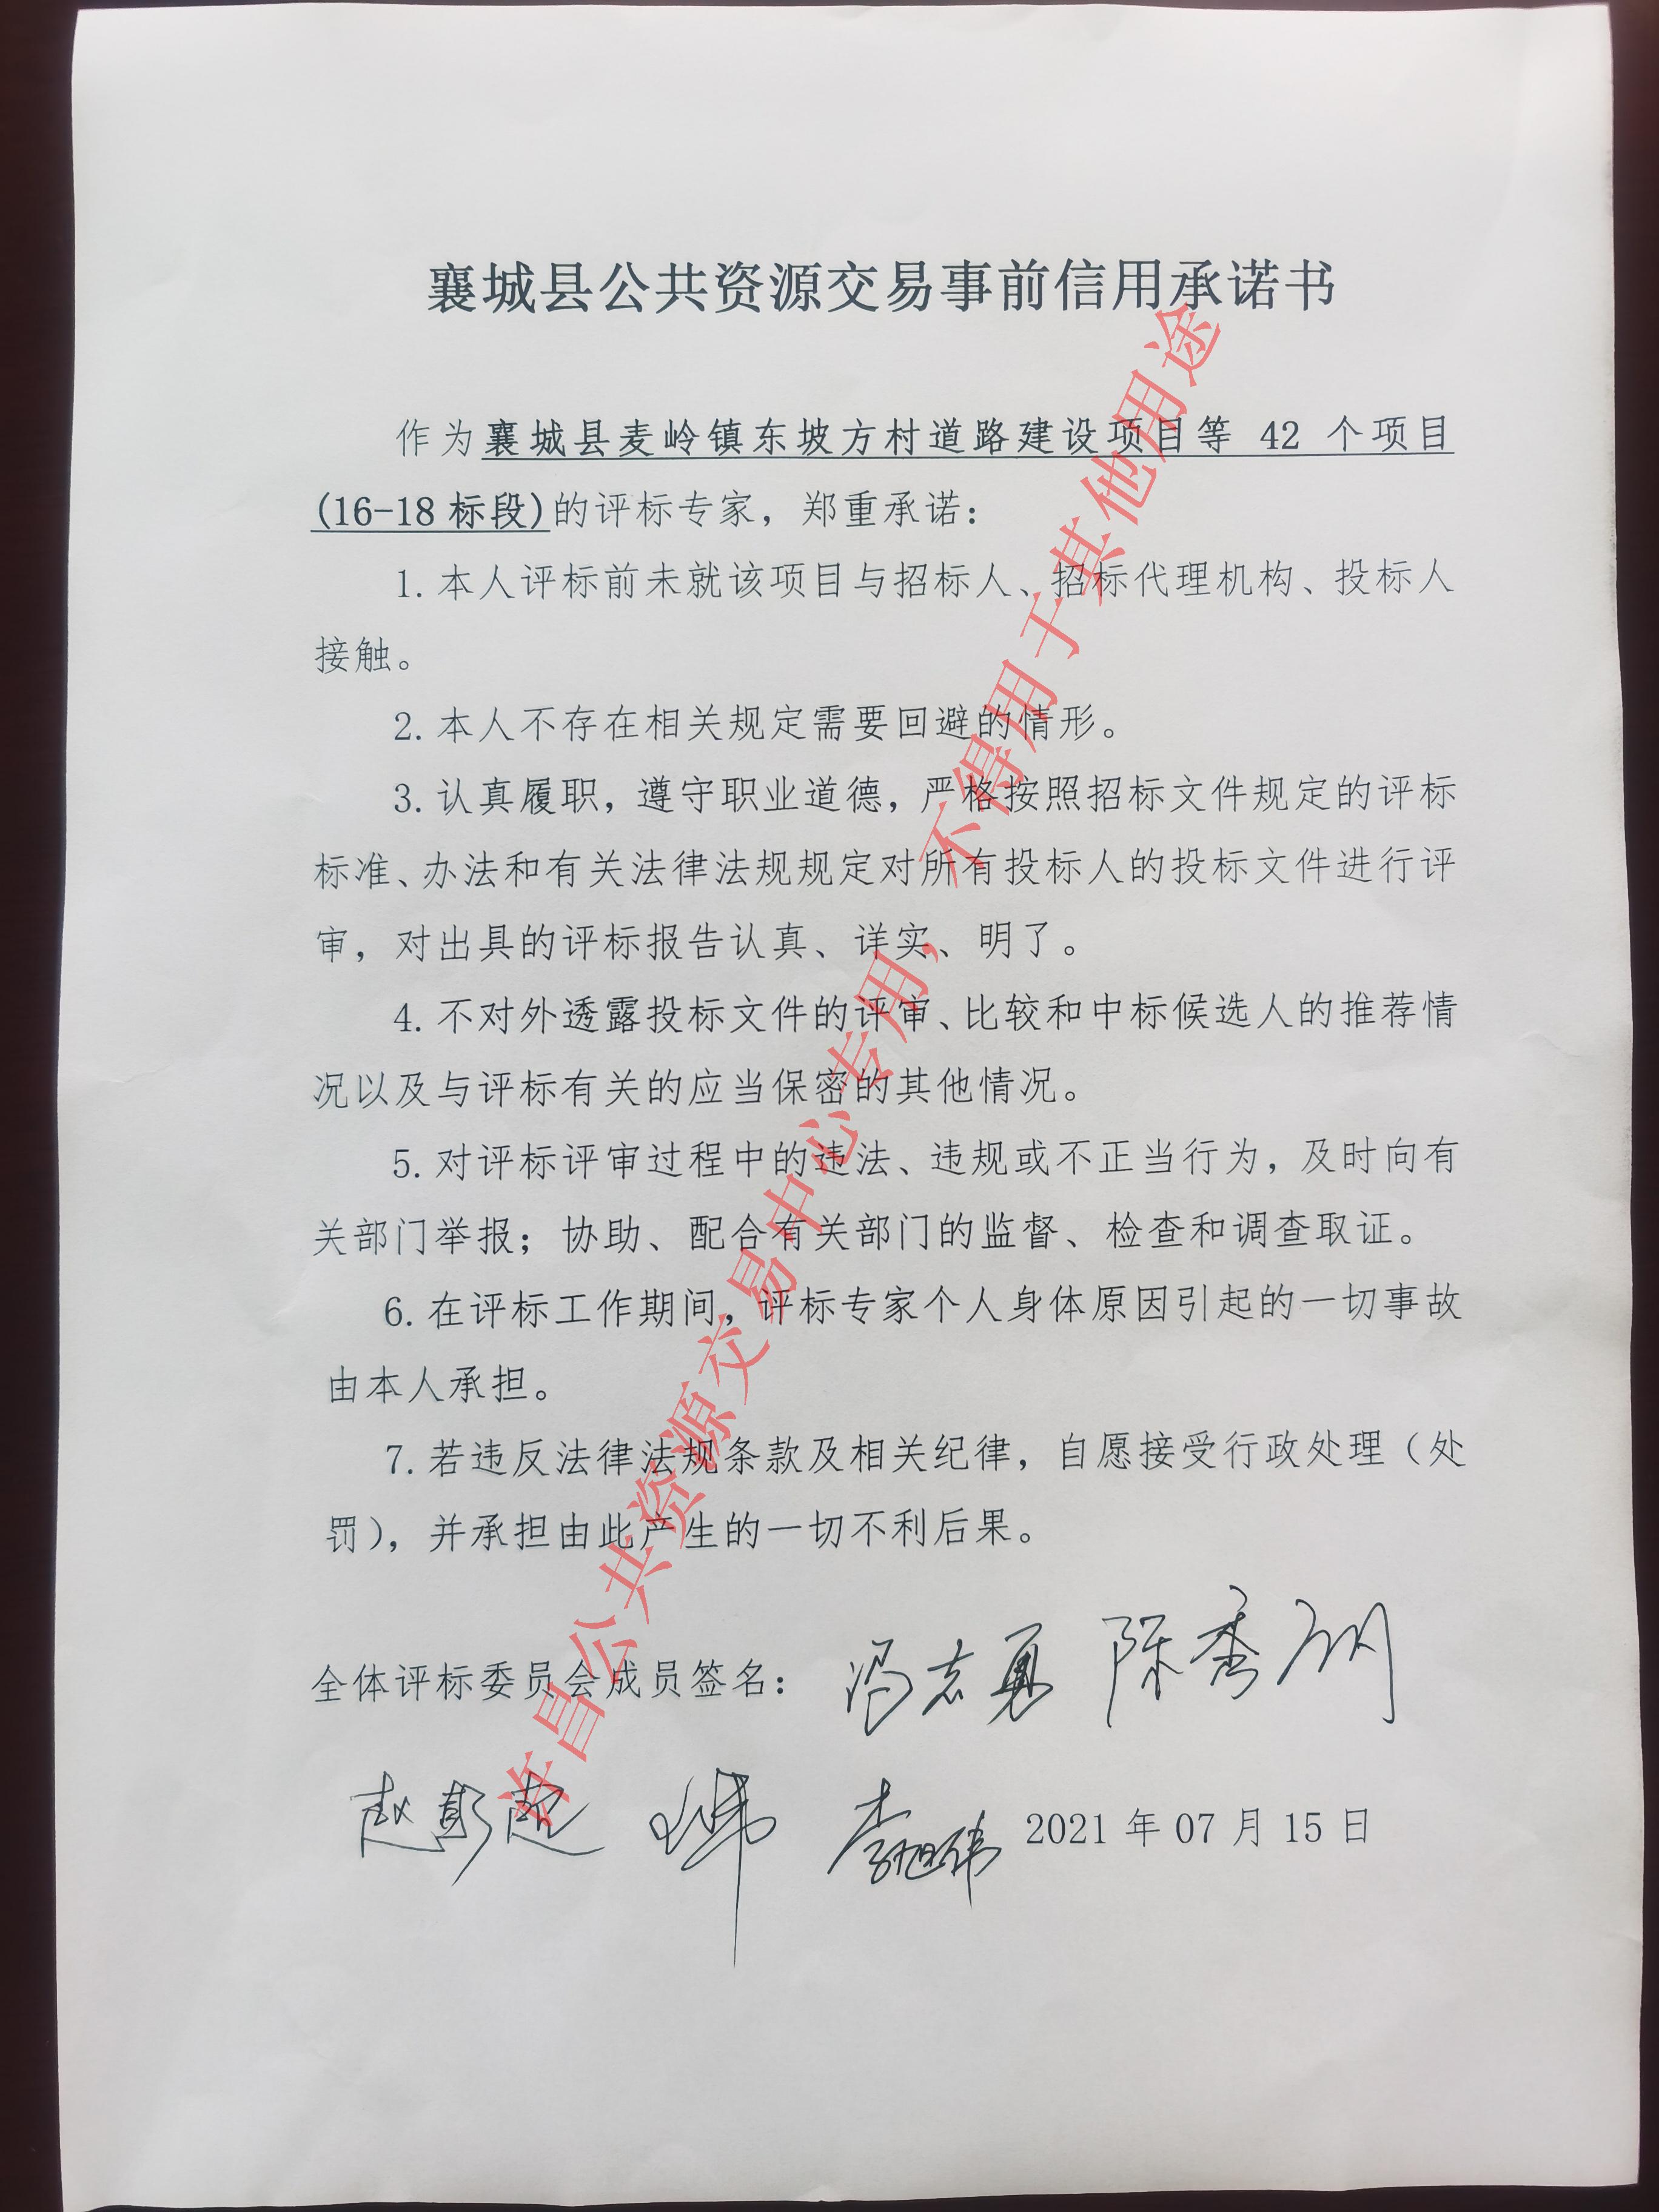 襄城县公共资源交易事前信用承诺书
作为襄城县麦岭镇东坡方村道路建设项目等 42 个项目
(16-18 标段)的评标专家，郑重承诺：
1. 本人评标前未就该项目与招标人、招标代理机构、投标人
接触。
2. 本人不存在相关规定需要回避的情形。
3. 认真履职，遵守职业道德，严格按照招标文件规定的评标
标准、办法和有关法律法规规定对所有投标人的投标文件进行评
审，对出具的评标报告认真、详实、明了。
4. 不对外透露投标文件的评审、比较和中标候选人的推荐情
况以及与评标有关的应当保密的其他情况。
5. 对评标评审过程中的违法、违规或不正当行为，及时向有
关部门举报；协助、配合有关部门的监督、检查和调查取证。
6. 在评标工作期间，评标专家个人身体原因引起的一切事故
由本人承担。
7. 若违反法律法规条款及相关纪律，自愿接受行政处理（处
罚），并承担由此产生的一切不利后果。
全体评标委员会成员签名： 冯志勇
赵彭超 李旭伟 2021 年 07 月 15 日
许昌公共资源交易中心专用，不得用于其他用途